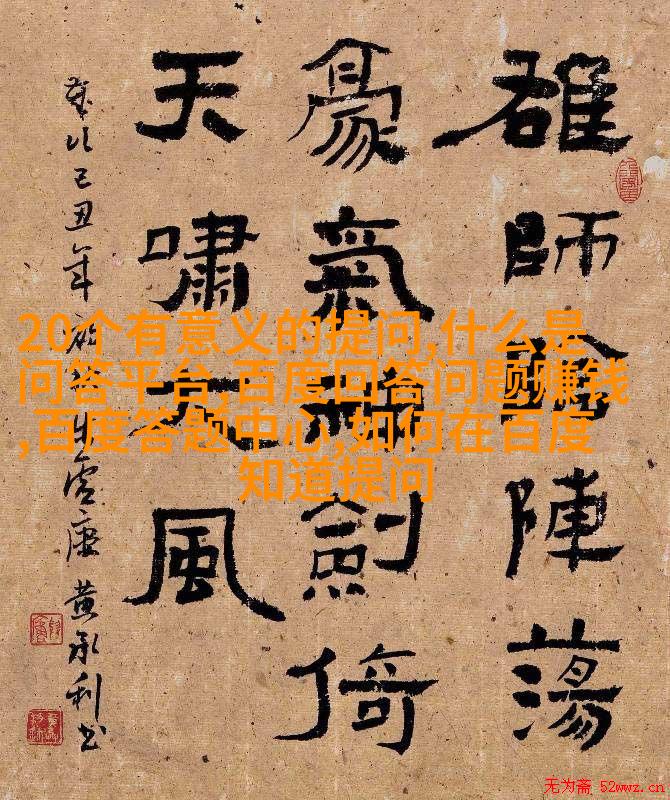 20个有意义的提问,什么是
问答平台,百度回答问题赚钱
,百度答题中心,如何在百度
知道提问
雄師陣蕩
豪氣劍倚
天嘯風
歲次己丑年 黄承利书
无为斋 52wwz.cn